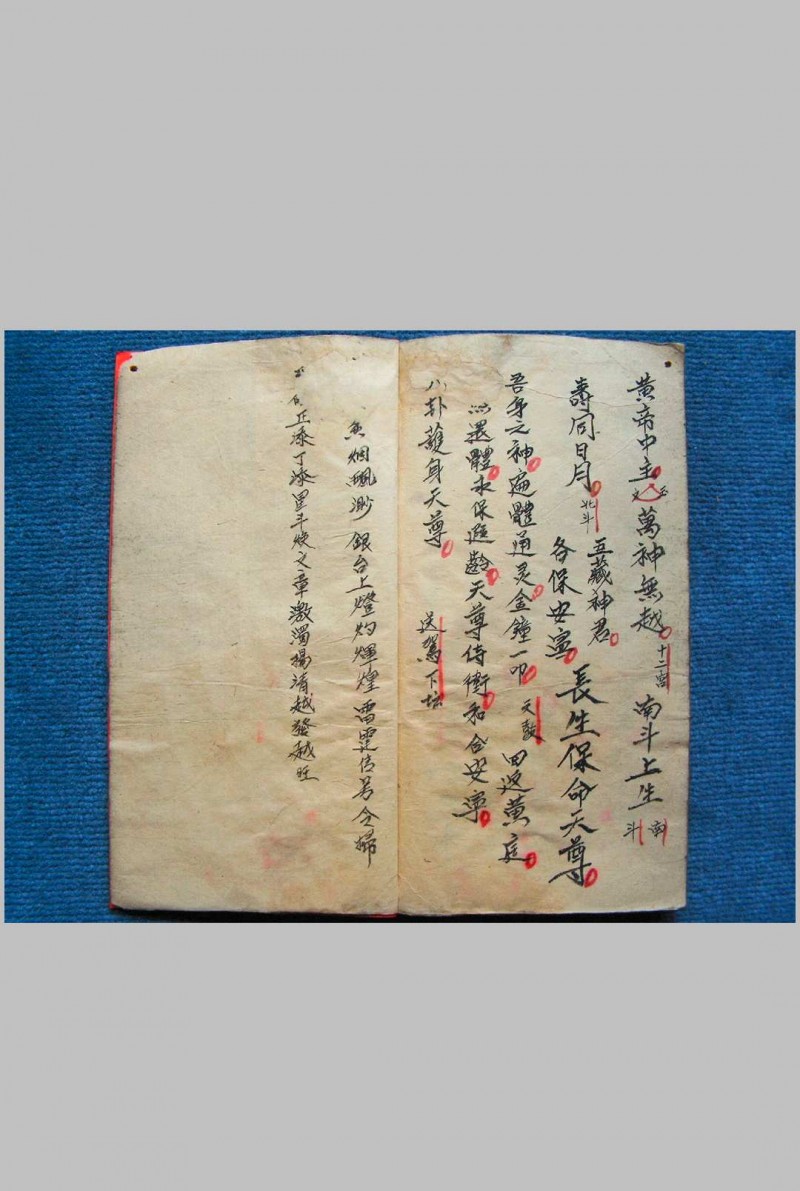 黄帝中主 萬神無越 十二宮 南斗上生 南斗
壽同日月 北斗 五藏神君
各保安寧 長生保命天尊
吾身之神 遍體通灵 金鐘一叩 天鼓 回返黄庭
以還體永保遐齡天尊侍衛和合安寧
八卦護身天尊 送駕下坛
香烟飄渺 銀台上燈灼輝煌 雷霆傳号令掃
正添丁添 斗焕文章激濁揚清越發越旺